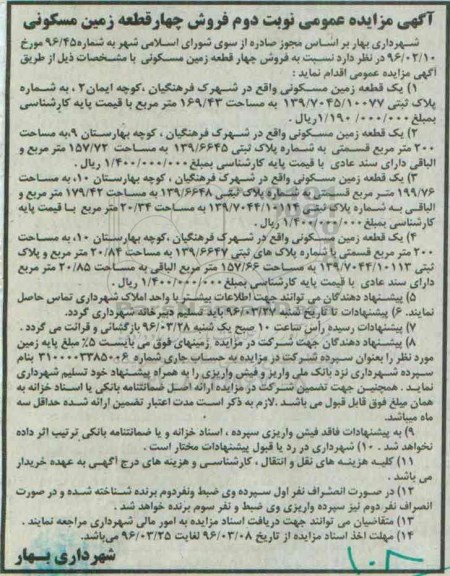 آگهی مزایده عمومی نوبت دوم فروش چهار قطعه زمین مسکونی
شهرداری بهار بر اساس مجوز صادره از سوی شورای اسلامی شهر به شماره ۹۶/۴۵ مورخ
۹۶/۰۲/۱۰ در نظر دارد نسبت به فروش چهار قطعه زمین مسکونی با مشخصات ذیل از طریق
آگهی مزایده عمومی اقدام نماید :
۱) یک قطعه زمین مسکونی واقع در شهرک فرهنگیان ،کوچه ایمان۲ ، به شماره
پلاک ثبتی ۱۳۹/۷۰۴۵/۱۰۰۷۷ به مساحت ۱۶۹/۴۳ متر مربع با قیمت پایه کارشناسی
بمبلغ ۱/۱۹۰/۰۰۰/۰۰۰ ریال .
۲) یک قطعه زمین مسکونی واقع در شهرک فرهنگیان ، کوچه بهارستان ۹،به مساحت
۲۰۰ متر مربع قسمتی به شماره پلاک ثبتی ۱۳۹/۶۶۴۵ به مساحت ۱۵۷/۷۲ متر مربع و
الباقی دارای سند عادی با قیمت پایه کارشناسی بمبلغ ۱/۴۰۰/۰۰۰/۰۰۰ ریال .
۳) یک قطعه زمین مسکونی واقع در شهرک فرهنگیان ، کوچه بهارستان ۱۰، به مساحت
۱۹۹/۷۶ متر مربع قسمتی به شماره پلاک ثبتی ۱۳۹/۶۶۴۸ به مساحت ۱۷۹/۴۲ متر مربع و
الباقی به شماره پلاک ثبتی ۱۳۹/۷۰۴۴/۱۰۱۱۴ به مساحت ۲۰/۳۴ متر مربع با قیمت پایه
کارشناسی بمبلغ ۱/۴۰۰/۰۰۰/۰۰۰ ریال .
۴) یک قطعه زمین مسکونی واقع در شهرک فرهنگیان ،کوچه بهارستان ۱۰، به مساحت
۲۰۰ متر مربع قسمتی با شماره پلاک های ثبتی ۱۳۹/۶۶۴۷ به مساحت ۲۰/۸۴ متر مربع و پلاک
ثبتی ۱۳۹/۷۰۴۴/۱۰۱۱۳ به مساحت ۱۵۷/۶۶ متر مربع الباقی به مساحت ۲۰/۸۵ متر مربع
دارای سند عادی با قیمت پایه کارشناسی بمبلغ ۱/۴۰۰/۰۰۰/۰۰۰ ریال .
۵) پیشنهاد دهندگان می توانند جهت اطلاعات بیشتر با واحد املاک شهرداری تماس حاصل
نمایند. ۶) پیشنهادات تا تاریخ شنبه ۹۶/۰۳/۲۷ باید تسلیم دبیرخانه شهرداری گردد.
۷) پیشنهادات رسیده رأس ساعت ۱۰ صبح یک شنبه ۹۶/۰۳/۲۸ بازگشائی و قرائت می گردد .
۸) پیشنهاد دهندگان جهت شرکت در مزایده زمینهای فوق می بایست ۵٪ مبلغ پایه زمین
مورد نظر را بعنوان سپرده شرکت در مزایده به حساب جاری شماره ۳۱۰۰۰۰۳۳۸۵۰۰۶ بنام
سپرده شهرداری نزد بانک ملی واریز و فیش واریزی را به همراه پیشنهاد خود تسلیم شهرداری
نماید . همچنین جهت تضمین شرکت در مزایده ارائه اصل ضمانتنامه بانکی یا اسناد خزانه به
همان مبلغ فوق قابل قبول می باشد .لازم به ذکر است مدت اعتبار تضمین ارائه شده حداقل سه
ماه میباشد.
۹) به پیشنهادات فاقد فیش واریزی سپرده ، اسناد خزانه و یا ضمانتنامه بانکی ترتیب اثر داده
نخواهد شد . ۱۰) شهرداری در رد یا قبول پیشنهادات مختار است .
۱۱) کلیه هزینه های نقل و انتقال ، کارشناسی و هزینه های درج آگهی به عهده خریدار
می باشد .
۱۲) در صورت انصراف نفر اول سپرده وی ضبط ونفردوم برنده شناخته شده و در صورت
انصراف نفر دوم نیز سپرده واریزی وی ضبط و نفر سوم برنده خواهد شد .
۱۳) متقاضیان می توانند جهت دریافت اسناد مزایده به امور مالی شهرداری مراجعه نمایند .
۱۴) مهلت اخذ اسناد مزایده از تاریخ ۹۶/۰۳/۰۸ لغایت ۹۶/۰۳/۲۵ می‌باشد.
شهرداری بهار